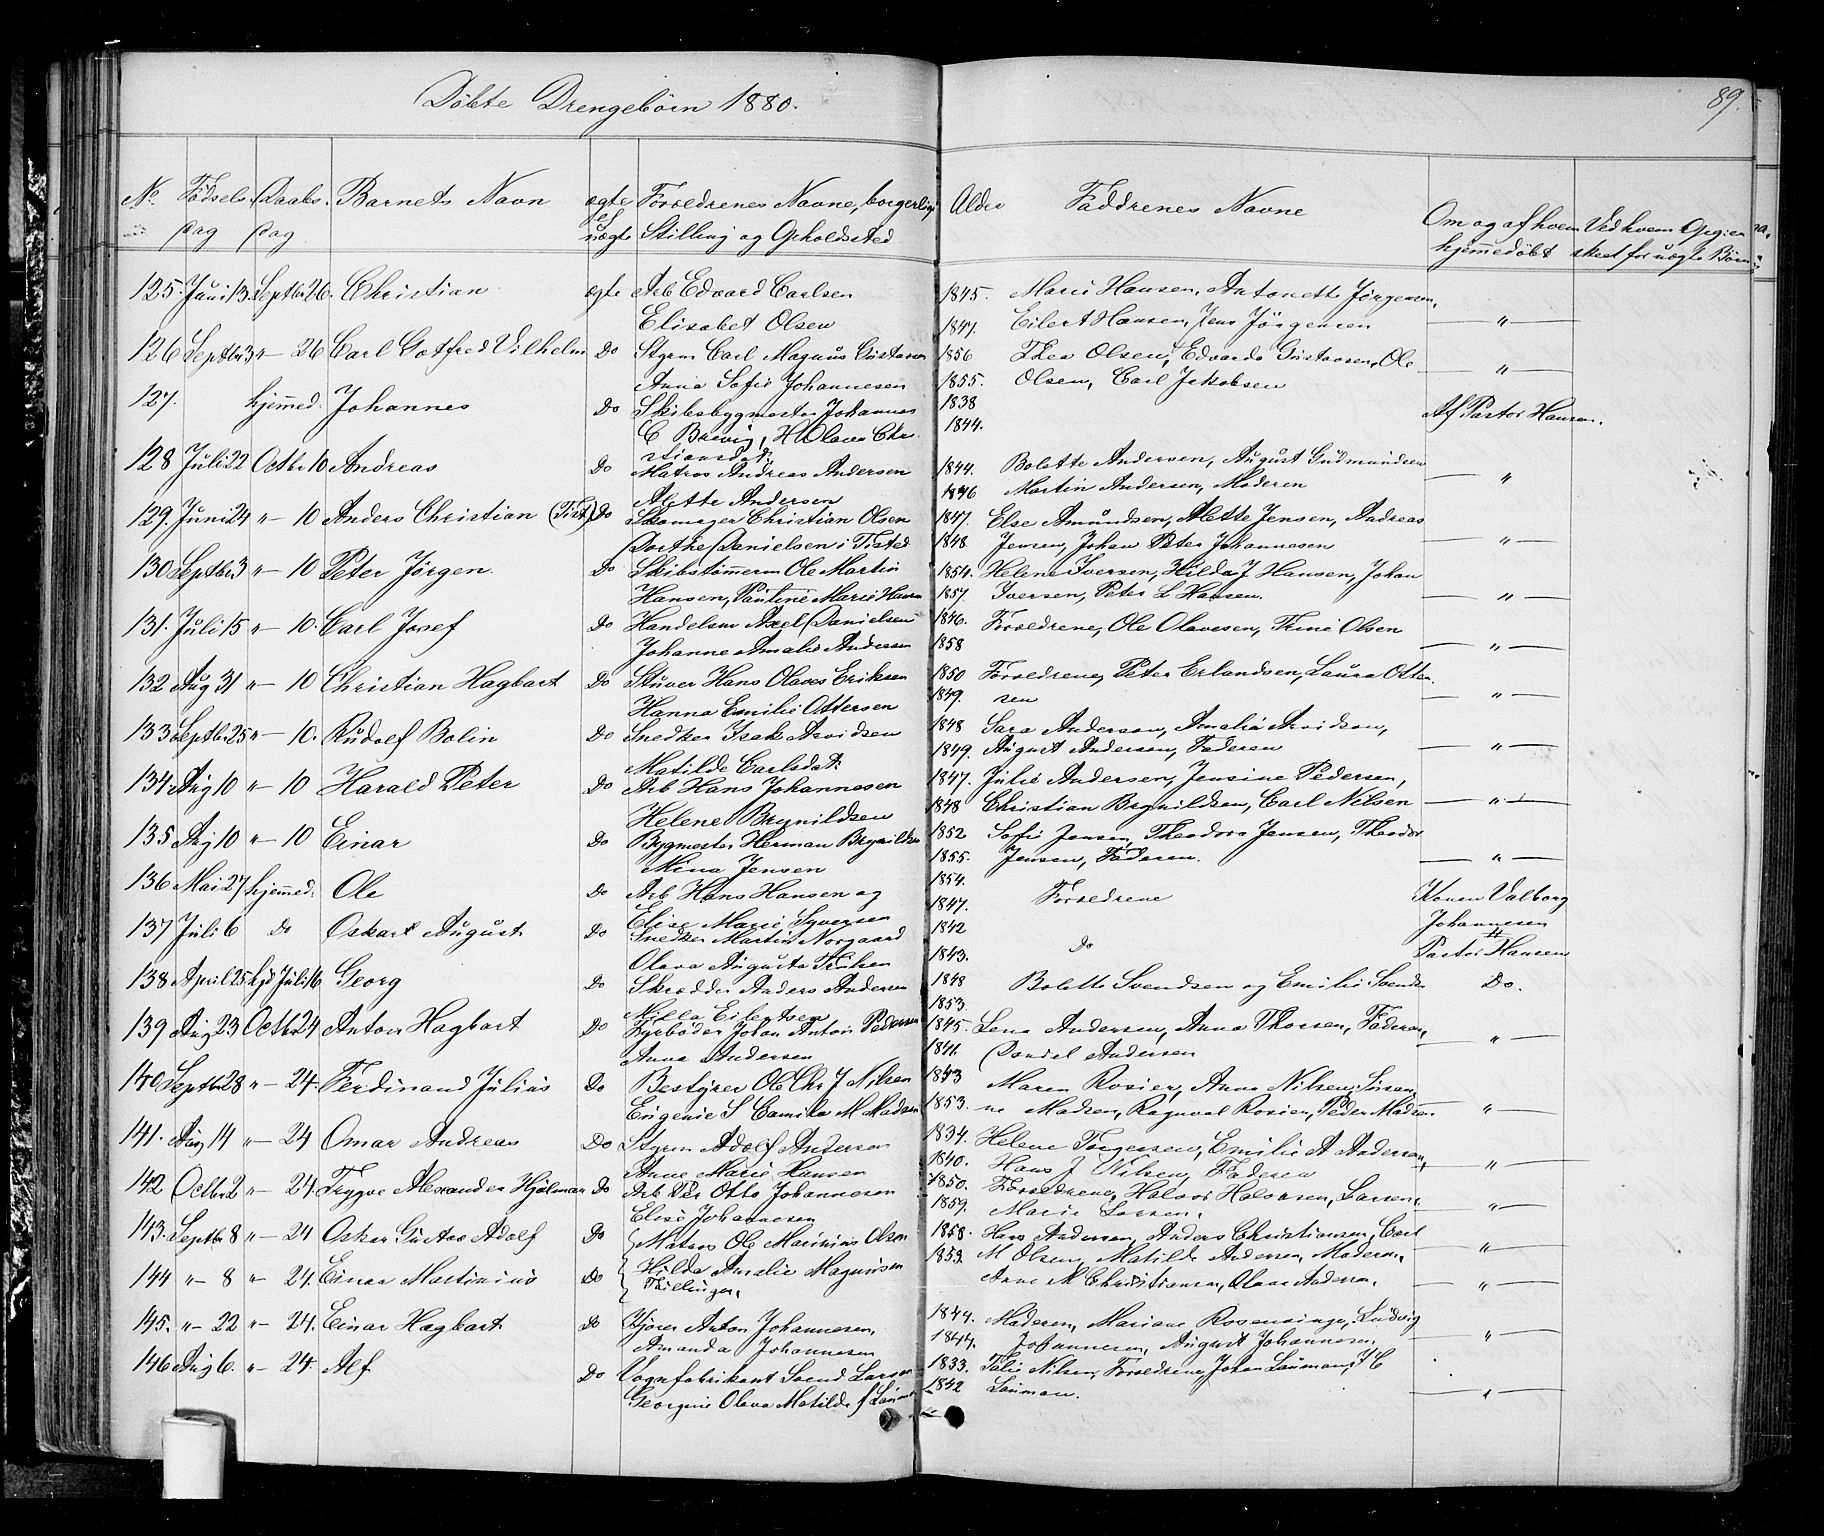 Døbte Drengebørn 1880.
89.
No Fødsels Daabs Barnets Navn ægte Forældrenes Navne, borgerlig Alder Faddrenes Navne
dag dag uægte Stilling og Opholdsted Om og af hvem Ved hvem
hjemmedøbt skeet for uægte Børn
125. Juni 13. Septbr 26. Christian ægte Arb Edvard Carlsen 1845. Marie Hansen, Antonette Jørgensen,
Elisabet Olsen 1847. Eilert Hansen, Jens Jörgensen "
126 Septbr 3 " 26 Carl Gotfred Vilhelm Do Styrm Carl Magnus Gustavsen 1856 Thea Olsen, Edvarda Gustavsen, Ole
Anna Sofie Johannesen 1855. Olsen, Carl Jakobsen "
127. hjemmed. Johannes Do Skibsbygmester Johannes 1838 Af Pastor Hansen.
C Brevig, H Olava Chr 1844.
stiansdat:
128 Juli 22 Octbr 10 Andreas Do Matros Andreas Andersen 1844. Bolette Andersen, August Gudmundsen
Alette Andersen 1846 Martin Andersen, Moderen "
129. Juni 24 " 10 Anders Christian (Tist) Do Skomager Christian Olsen 1847. Else Amundsen, Alette Jensen, Andreas
Dorthe Danielsen i Tisted 1848. Jensen, Johan Peter Johannesen "
130 Septbr 3 " 10 Peter Jørgen. Do Skibstømmerm Ole Martin 1854. Helene Iversen, Hilda J Hansen, Johan
Hansen, Pauline Marie Hansen 1857. Iversen, Peter L Hansen. "
131. Juli 15 " 10. Carl Josef Do Handelsm Axel Danielsen 1846. Forældrene, Ole Olavesen, Trine Olsen
Johanne Amalie Andersen 1858 "
132 Aug 31 " 10 Christian Hagbart Do Stuver Hans Olaves Eriksen 1850 Forældrene, Peter Erlandsen, Laura Otter
Hanna Emilie Ottersen 1849. sen "
133 Septbr 25 " 10. Rudolf Bolin Do Snedker Isak Arvidsen 1848 Sara Andersen, Amalia Arvidsen,
Matilde Carlsdat: 1849. August Andersen, Faderen "
134. Aug 10 " 10 Harald Peter Do Arb Hans Johannesen 1847. Julie Andersen, Jensine Pedersen,
Helene Brynildsen 1848 Christian Brynildsen, Carl Nilsen "
135 Aug 10 " 10 Einar Do Bygmester Herman Brynildsen 1852 Sofie Jensen, Theodora Jensen, Theodor
Mina Jensen 1855. Jensen, Faderen. "
136 Mai 27 hjemmed. Ole Do Arb Hans Hansen og 1854. Forældrene Konen Valborg
Elise Marie Syversen 1847. Johannesen
137 Juli 6 Do Oskar August Do Snedker Martin Norgaard 1842 Do
Olava Augusta Trulsen 1843. Pastor Hansen
138 April 25 Juli 16 Georg Do Skrædder Anders Andersen 1848 Bolette Svendsen og Emilie Svends Do.
Milla Eilertsen 1853
139 Aug 23 Octbr 24 Anton Hagbart Do Fyrbøder Johan Anton Pedersen 1845. Lena Andersen, Anna Thorsen, Faderen,
Anna Andersen 1841. Daniel Andersen "
140 Septbr 28 " 24. Ferdinand Julius Do Bestyrer Ole Chr J Nilsen 1843 Maren Rosier, Anna Nilsen, Susan
Eugenie S Camilla M Madsen 1853. ne Madsen, Ragnval Rosien, Peder Madsen "
141. Aug 14 " 24 Omar Andreas Do Styrm Adolf Andersen 1834. Helene Torgersen, Emilie A Andersen,
Anne Marie Hansen 1840. Hans J Nilsen, Faderen "
142 Octbr 2 " 24. Trygve Alexander Hjalmar Do Arb Per Otto Johannesen 1850. Forældrene, Halvor Halvorsen, Larsen
Elise Johannesen 1859. Marie Larsen. "
143. Septbr 8 " 24 Oskar Gustav Adolf Do Matros Ole Marinius Olsen 1858. Hans Andersen, Anders Christiansen, Carl
1853. M Olsen, Matilde Andersen, Moderen, "
144 " 8 " 24. Einar Martinius Do Hilda Amalie Magnusen Anne M Christiansen, Olava Andersen.
Tvillinger. "
145. " 22 " 24. Einar Hagbart Do Kjører Anton Johannesen, 1844. Moderen, Mariane Rosenvinge, Ludvig
Amanda Johannesen 1844. Johannesen, August Johannesen "
146 Aug 6. " 24. Alf Do Vognfabrikant Svend Larsen 1833. Talie Nilsen, Forældrene, Johan Lauman, J C
Georgine Olava Matilde f Lauman 1842 Lauman. "